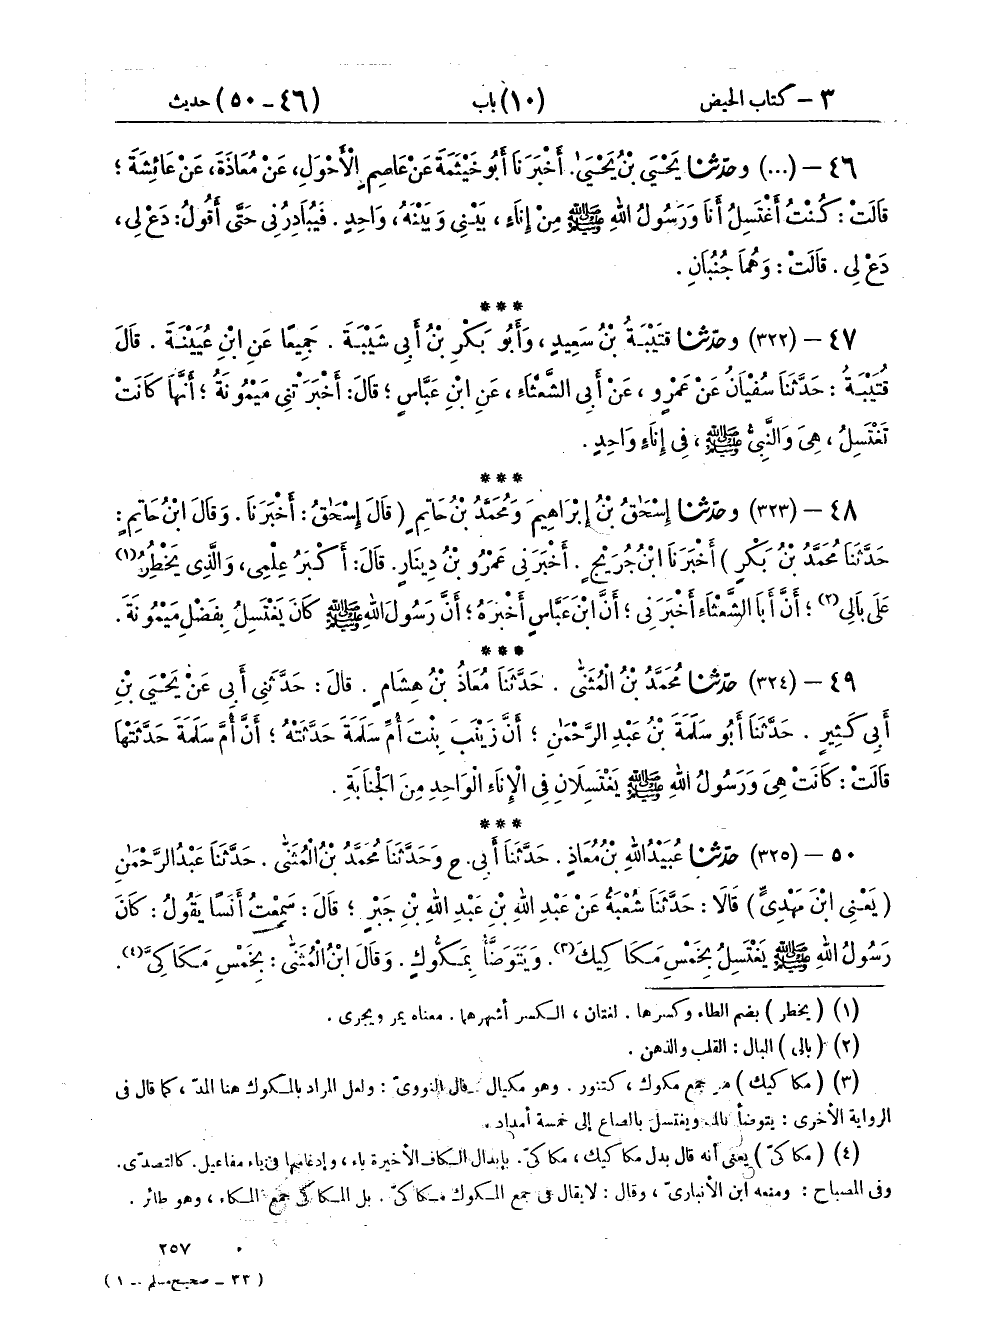 ٣ – كتاب الحيض (١٠) باب (٤٦ – ٥٠) حديث
٤٦ – (...) وحدّثنا يَحْيَىٰ بْنُ يَحْيَىٰ. أَخْبَرَنَا أَبُو خَيْثَمَةَ عَنْ عَاصِمٍ الْأَحْوَلِ، عَنْ مُعَاذَةَ، عَنْ عَائِشَةَ ؛
قَالَتْ : كُنْتُ أَغْتَسِلُ أَنَا وَرَسُولُ اللهِ ﷺ مِنْ إِنَاءٍ ، بَيْنِي وَبَيْنَهُ ، وَاحِدٍ . فَيُبَادِرُنِي حَتَّى أَقُولَ : دَعْ لِي ،
دَعْ لِي . قَالَتْ : وَهُمَا جُنُبَانِ .
***
٤٧ – (٣٢٢) وحدّثنا قُتَيْبَةُ بْنُ سَعِيدٍ ، وَأَبُو بَكْرِ بْنُ أَبِي شَيْبَةَ . جَمِيعًا عَنِ ابْنِ عُيَيْنَةَ . قَالَ
قُتَيْبَةُ : حَدَّثَنَا سُفْيَانُ عَنْ عَمْرٍو ، عَنْ أَبِي الشَّعْثَاءِ ، عَنِ ابْنِ عَبَّاسٍ ؛ قَالَ : أَخْبَرَتْنِي مَيْمُونَةُ ؛ أَنَّهَا كَانَتْ
تَغْتَسِلُ ، هِيَ وَالنَّبِيُّ ﷺ ، فِي إِنَاءٍ وَاحِدٍ .
***
٤٨ – (٣٢٣) وحدّثنا إِسْحَٰقُ بْنُ إِبْرَاهِيمَ وَمُحَمَّدُ بْنُ حَاتِمٍ ( قَالَ إِسْحَٰقُ : أَخْبَرَنَا . وَقَالَ ابْنُ حَاتِمٍ :
حَدَّثَنَا مُحَمَّدُ بْنُ بَكْرٍ ) أَخْبَرَنَا ابْنُ جُرَيْجٍ . أَخْبَرَنِي عَمْرُو بْنُ دِينَارٍ . قَالَ : أَكْبَرُ عِلْمِي ، وَالَّذِي يَخْطُِرُ (١)
عَلَى بَالِي (٢) ؛ أَنَّ أَبَا الشَّعْثَاءِ أَخْبَرَنِي ؛ أَنَّ ابْنَ عَبَّاسٍ أَخْبَرَهُ ؛ أَنَّ رَسُولَ اللهِ ﷺ كَانَ يَغْتَسِلُ بِفَضْلِ مَيْمُونَةَ .
***
٤٩ – (٣٢٤) حدّثنا مُحَمَّدُ بْنُ الْمُثَنَّىٰ . حَدَّثَنَا مُعَاذُ بْنُ هِشَامٍ . قَالَ : حَدَّثَنِي أَبِي عَنْ يَحْيَىٰ بْنِ
أَبِي كَثِيرٍ . حَدَّثَنَا أَبُو سَلَمَةَ بْنُ عَبْدِ الرَّحْمَٰنِ ؛ أَنَّ زَيْنَبَ بِنْتَ أُمِّ سَلَمَةَ حَدَّثَتْهُ ؛ أَنَّ أُمَّ سَلَمَةَ حَدَّثَتْهَا
قَالَتْ : كَانَتْ هِيَ وَرَسُولُ اللهِ ﷺ يَغْتَسِلَانِ فِي الْإِنَاءِ الْوَاحِدِ مِنَ الْجَنَابَةِ .
***
٥٠ – (٣٢٥) حدّثنا عُبَيْدُ اللهِ بْنُ مُعَاذٍ . حَدَّثَنَا أَبِي . ح وَحَدَّثَنَا مُحَمَّدُ بْنُ الْمُثَنَّىٰ . حَدَّثَنَا عَبْدُ الرَّحْمَٰنِ
( يَعْنِي ابْنَ مَهْدِيٍّ ) قَالَا : حَدَّثَنَا شُعْبَةُ عَنْ عَبْدِ اللهِ بْنِ عَبْدِ اللهِ بْنِ جَبْرٍ ؛ قَالَ : سَمِعْتُ أَنَسًا يَقُولُ : كَانَ
رَسُولُ اللهِ ﷺ يَغْتَسِلُ بِخَمْسِ مَكَاكِيكَ (٣) . وَيَتَوَضَّأُ بِمَكُّوكٍ . وَقَالَ ابْنُ الْمُثَنَّىٰ : بِخَمْسِ مَكَاكِيَّ (٤) .
(١) ( يخطر ) بضم الطاء وكسرها . لغتان ، الكسر أشهرهما . معناه يمر ويجرى .
(٢) ( بالى ) البال : القلب والذهن .
(٣) ( مكاكيك ) هو جمع مكوك ، كتنور . وهو مكيال . قال النووىّ : ولعل المراد بالمكوك هنا المدّ ، كما قال فى
الرواية الأخرى : يتوضأ بالمد ويغتسل بالصاع إلى خمسة أمداد .
(٤) ( مكاكىّ ) يعنى أنه قال بدل مكاكيك ، مكاكىّ . بإبدال الكاف الأخيرة ياء ، وإدغامها فى ياء مفاعيل . كالتصدّى .
وفى المصباح : ومنعه ابن الأنبارىّ ، وقال : لا يقال فى جمع المكوك مكاكىّ . بل المكاكىّ جمع المكاء ، وهو طائر .
٢٥٧
( ٣٣ – صحيح مسلم – ١ )